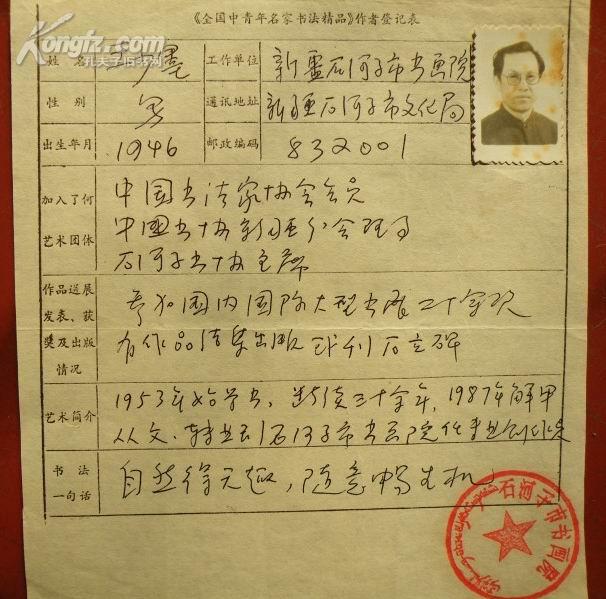 《全国中青年名家书法精品》作者登记表
Kongfz.com
孔夫子旧书网
姓名 墨 工作单位 新疆石河子市书画院
性别 男 通讯地址 新疆石河子市文化局
出生年月 1946 邮政编码 832001
加入了何
艺术团体
中国书法家协会会员
中国书协新疆分会理事
石河子书协主席
作品送展
发表、获
奖及出版
情况
参加国内国际大型书展二十余次
有作品结集出版或刊石立碑
艺术简介
1953年始学书，断续三十余年，1987年解甲
从文，转业到石河子市书画院任专业创作员
书法
一句话
自然得天趣，随意畅生机
石河子市书画院